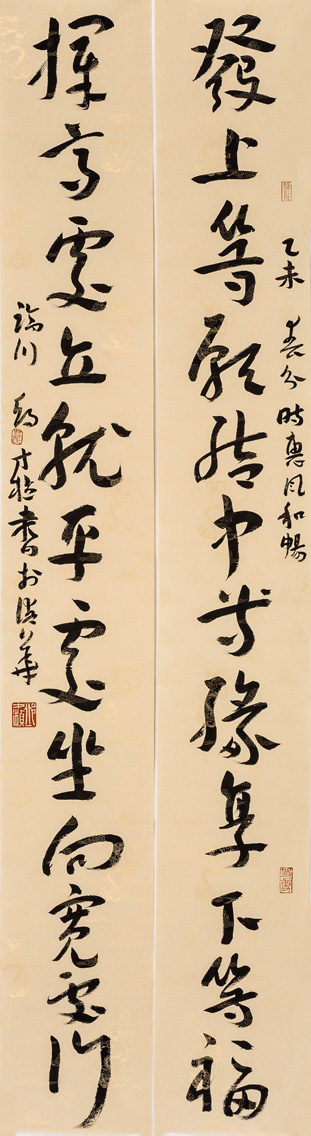 發上等願結中等緣享下等福
乙未春分時惠風和暢
擇高處立就平處坐向寬處行
書於清華